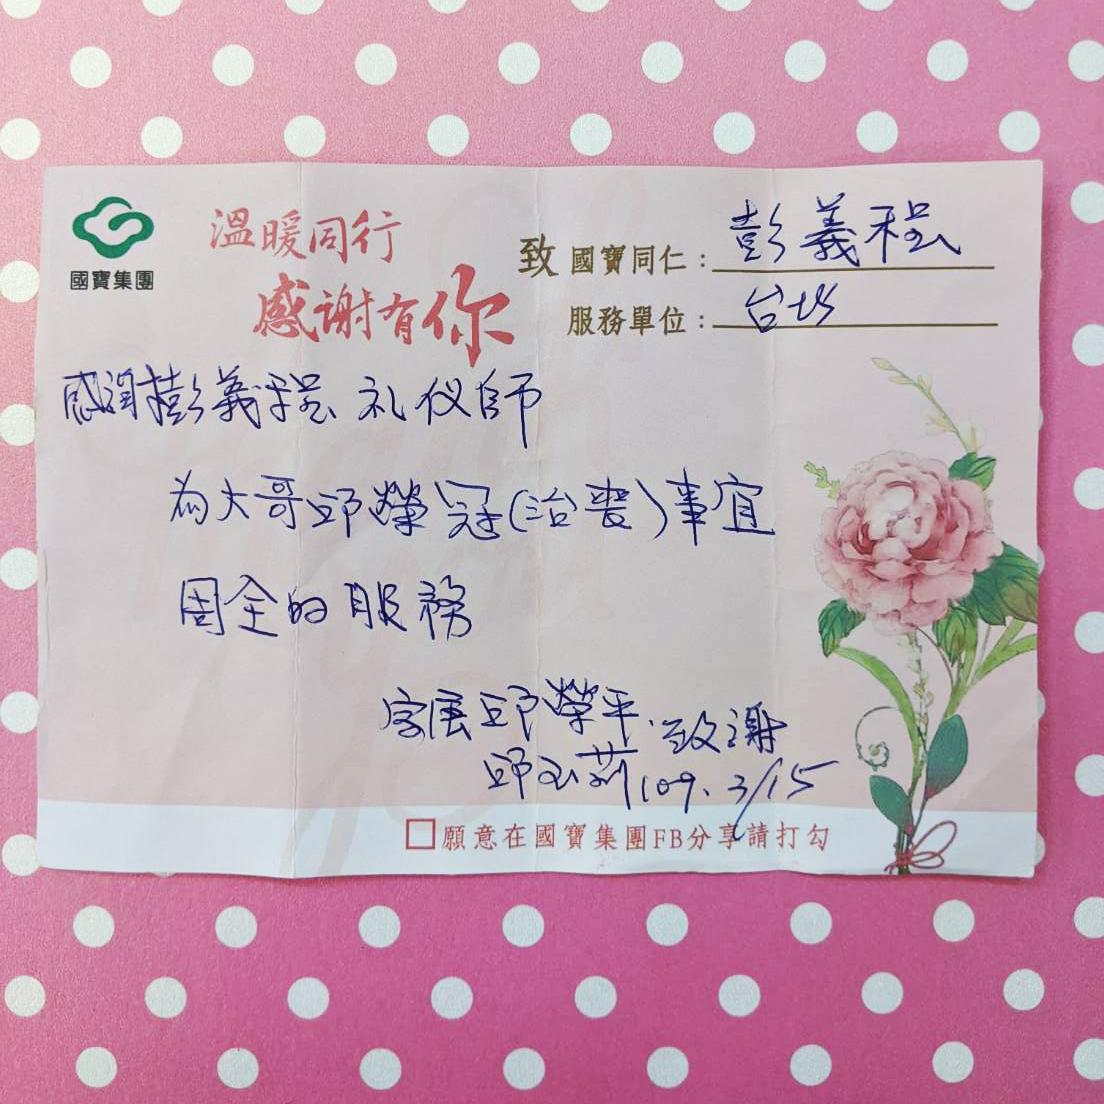 國寶集團
溫暖同行
感謝有你
致 國寶同仁：彭義程
服務單位：台北
感謝彭義程 礼仪師
為大哥邱榮冠(治喪)事宜
周全的服務
家属 邱榮平 致謝
邱玉莉 109. 3/15
□願意在國寶集團FB分享請打勾